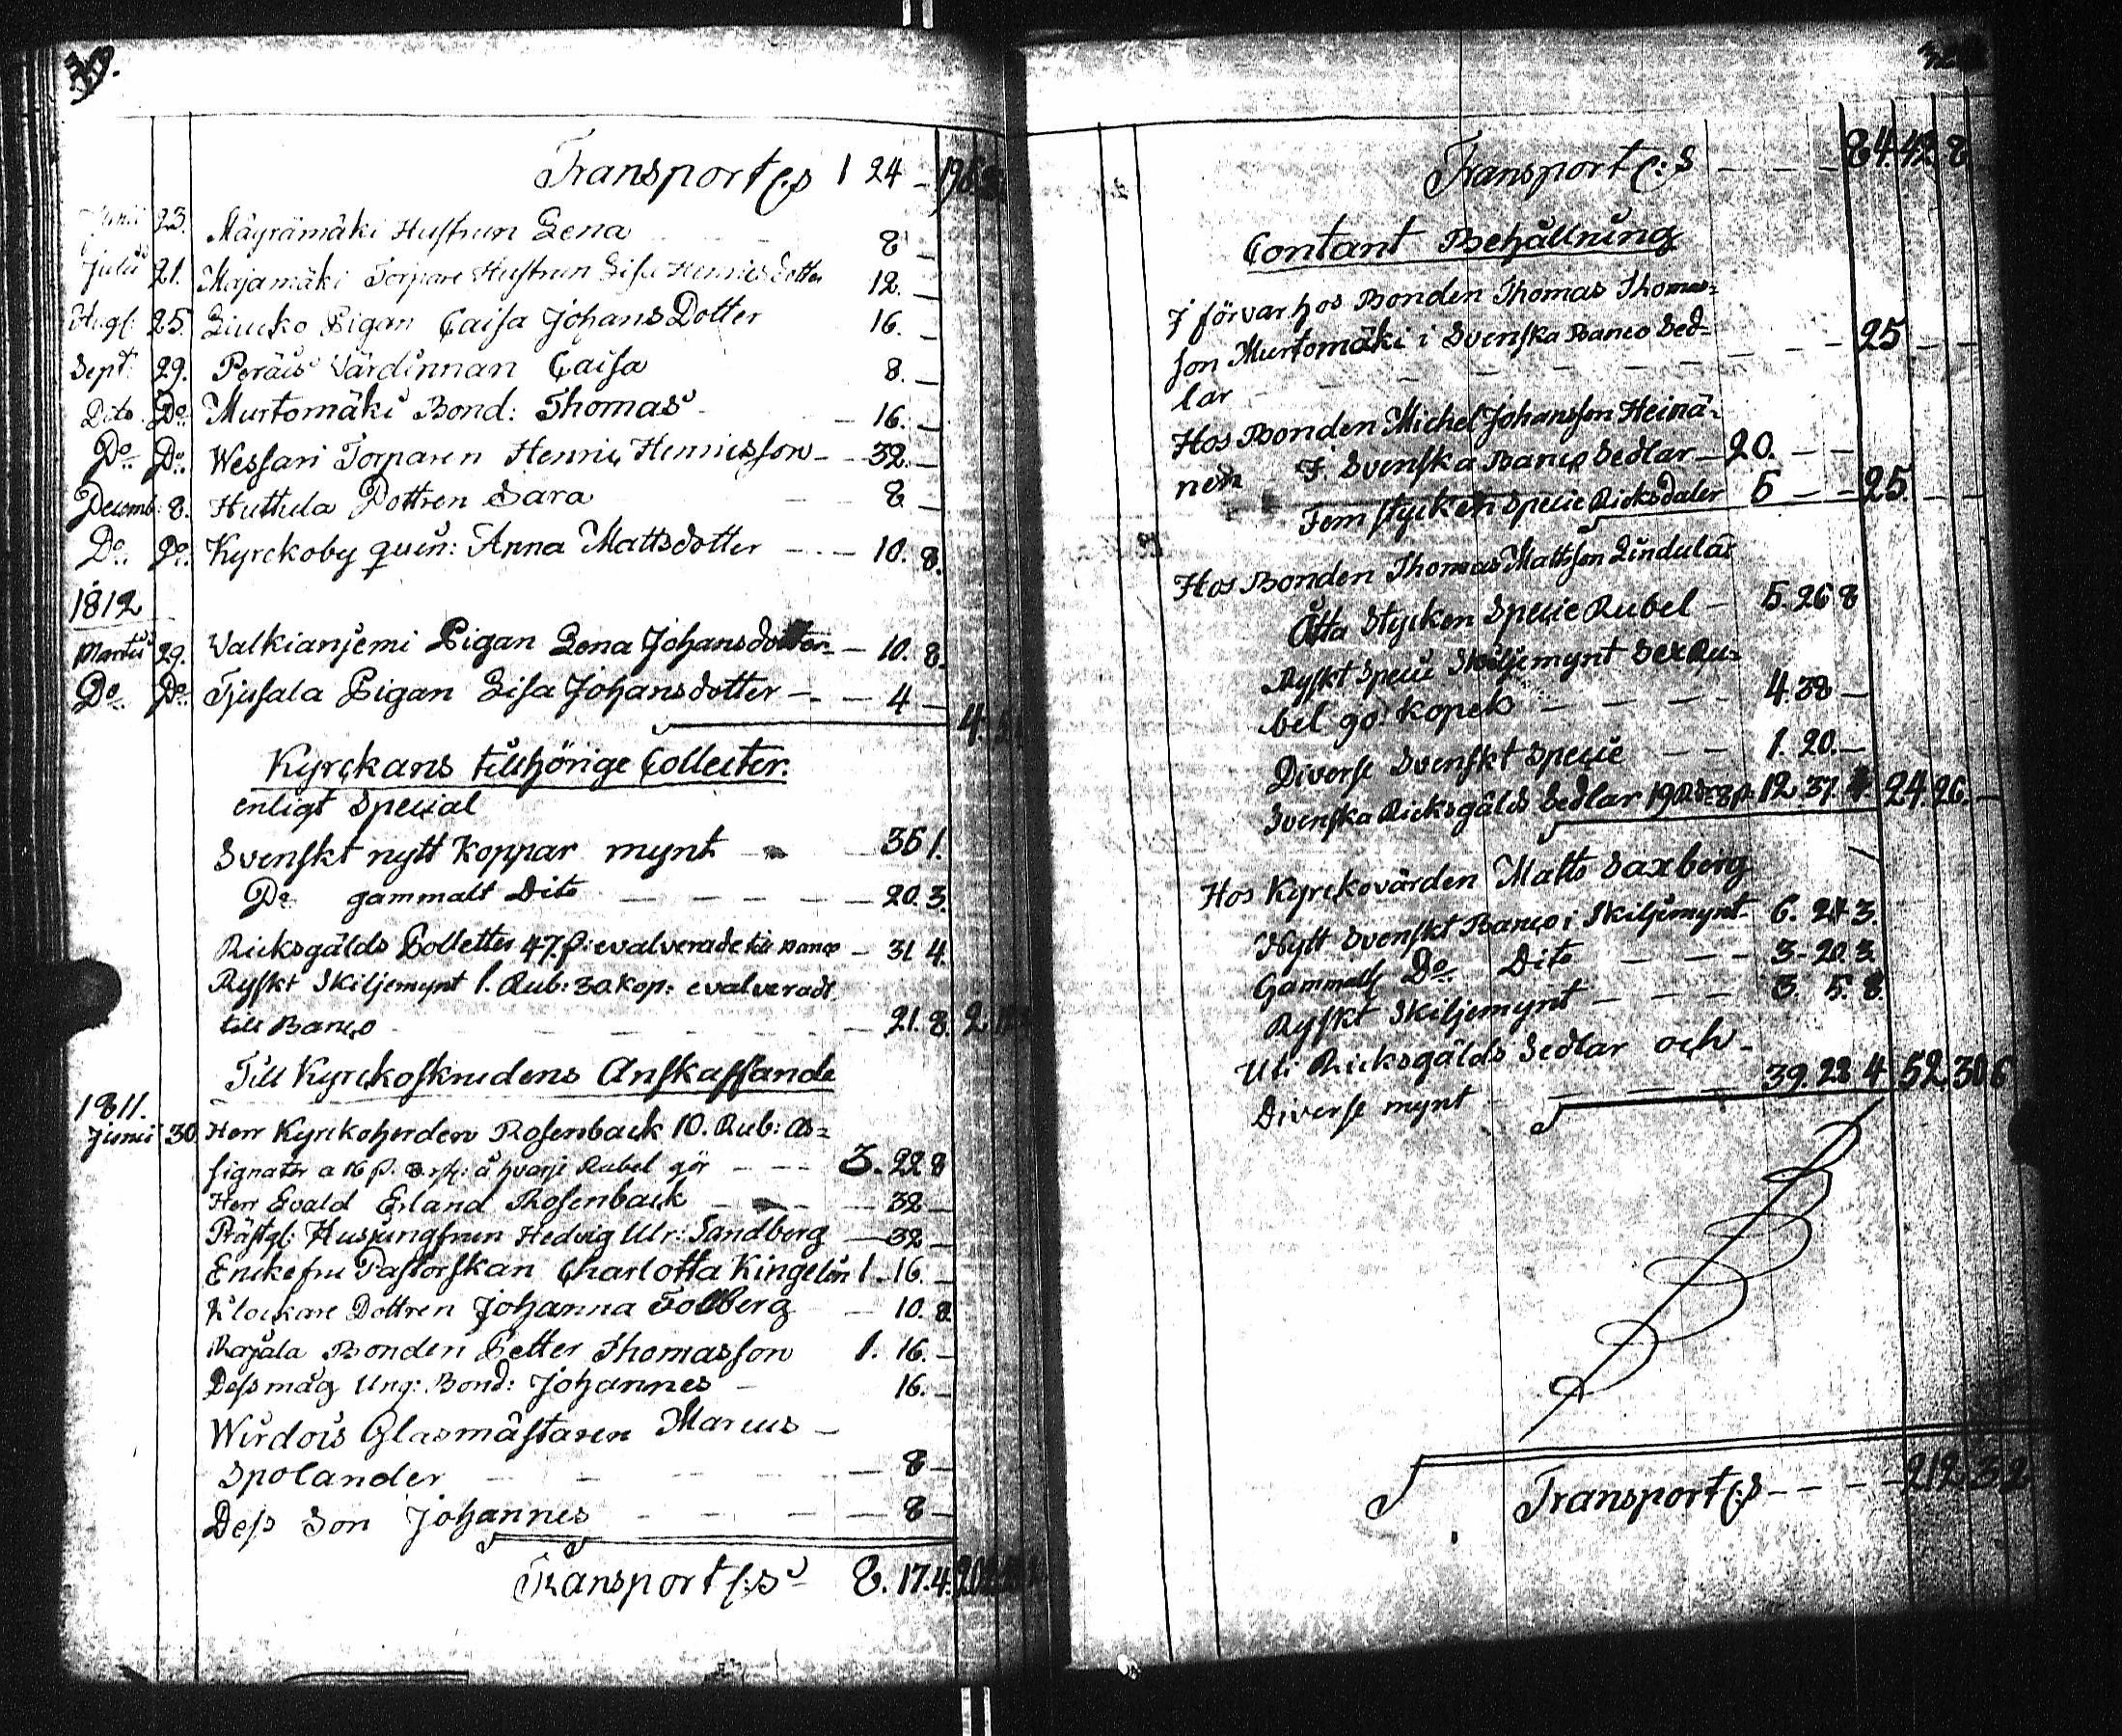 Transport f:s 1 24 –
Junii 23. Mäyrämäki Hustrun Lena 8 –
Julii 21. Majamäki Torpare Hustrun Lisa Henricsdotter 12. –
Aug: 25. Pigan Caisa Johans Dotter 16. –
Sept: 29. Peräis Värdinnan Caisa 8. –
Dito Do Murtomäki Bond: Thomas – 16. –
Do Do Wessari Torparen Henric Henricsson – 32. –
Decemb: 8. Huttula Dottren Sara 8 –
Do Do Kyrckoby quin: Anna Mattsdotter – 10. 8.
1812
Martii 29. Valkianjemi Pigan Lena Johansdotter – 10. 8.
Do Do Tjusala Pigan Lisa Johansdotter – – 4 –
4.
Kyrckans tillhörige Collecter.
enligt Special
Svenskt nytt Koppar mynt – 35 1.
Do gammalt Dito – 20. 3.
Ricksgälds Polletter 47. ß: evalverade till Banco – 31 4.
Ryskt Skiljemynt 1. Rub: 30. Kop: evalveradt
till Banco – 21. 8. 2.
Till Kyrckoskrudens Anskaffande
1811.
Junii 30 Herr Kyrckoherden Rosenback 10. Rub: As=
signater a 16 ß. 8. rst: å hvarje Rubel gör – 3. 22 8
Herr Evald Erland Rosenback – 32 –
Prästgl: Husjungfrun Hedvig Ulr: Sandberg – 32 –
Enckefru Pastorskan Charlotta Kingelin 1 – 16. –
Klockare Dottren Johanna Tolberg – 10. 8.
Rajala Bonden Petter Thomasson 1. 16. –
Dess måg Ung: Bond: Johannes – 16. –
Wirdois Glasmästaren Marcus –
Spolander – 8 –
Dess Son Johannes – 8 –
Transport f:s 8. 17. 4.
Transport f:s – – – 84. 42. 8
Contant Behållning
I förvar hos Bonden Thomas Thomas=
son Murtomäki i Svenska Banco Sed=
lar – – – 25 – –
Hos Bonden Michel Johansson Heinä=
nen I. Svenska Banco Sedlar – 20. – –
Fem stycken Specie Ricksdaler 5 – – 25. – –
Hos Bonden Thomas Mattsson Lindulax
Åtta Stycken Specie Rubel – 5. 26 8
Ryskt Specie Skiljemynt Sex Ru=
bel 90. Kopek – – – 4. 38 –
Diverse Svenskt Specie – – 1. 20. –
Svenska Ricksgälds Sedlar 19 Rd: 8 ß. 12. 37. 4. 24. 26. –
Hos Kyrckovärden Matts Saxberg
Nytt Svenskt Banco i Skiljemynt – 6. 24 3.
Gammalt Do Dito – – – 3. 20. 3.
Ryskt Skiljemynt – – – 3. 5. 8.
Uti Ricksgälds Sedlar och –
Diverse mynt – – – 39. 28 4 52. 30 6
Transport f:s – – – – 212. 3. 2